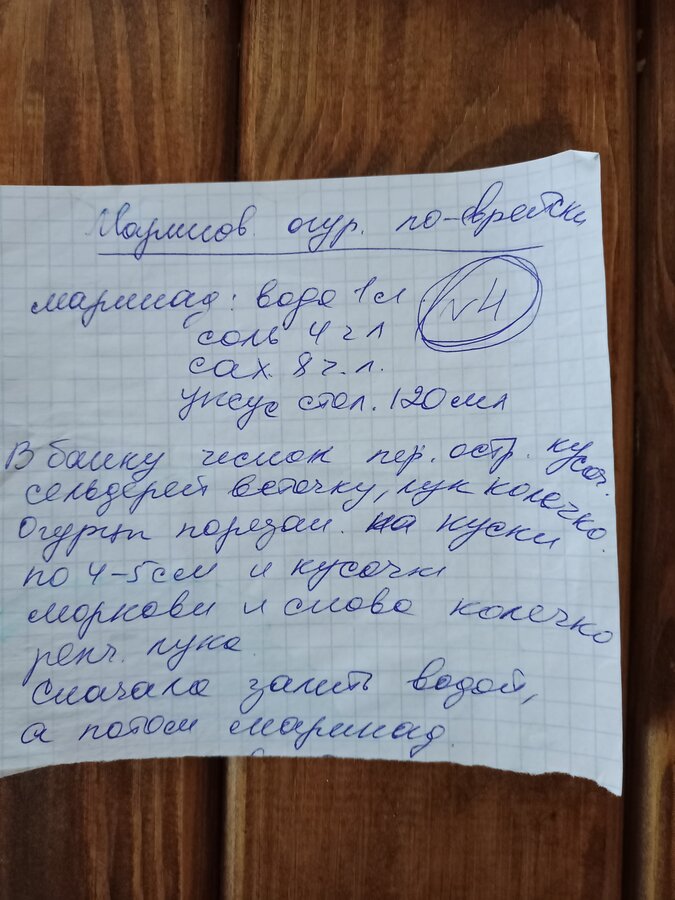 Маринов. огур. по-еврейски
маринад: вода 1л
№4
соль 4 ч л
сах. 8 ч. л.
уксус стол. 120мл
В банку чеснок пер. остр. кусоч.
сельдерей веточку, лук колечко.
Огурцы порезан. на куски
по 4-5см и кусочки
моркови и снова колечко
репч. лука
сначала залить водой,
а потом маринад